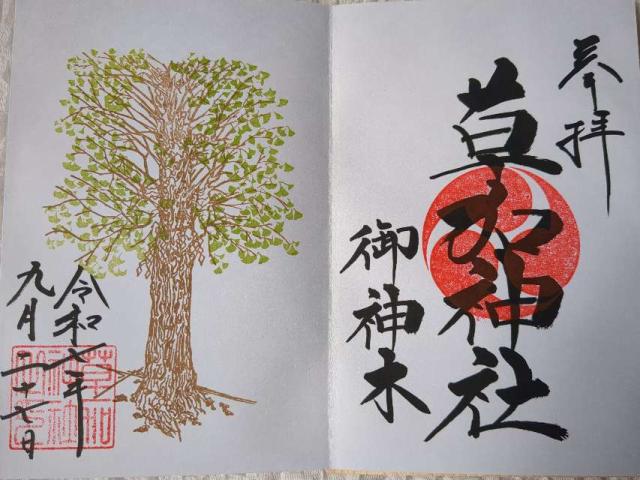 奉拝
草加神社
御神木
令和七年
九月二十七日